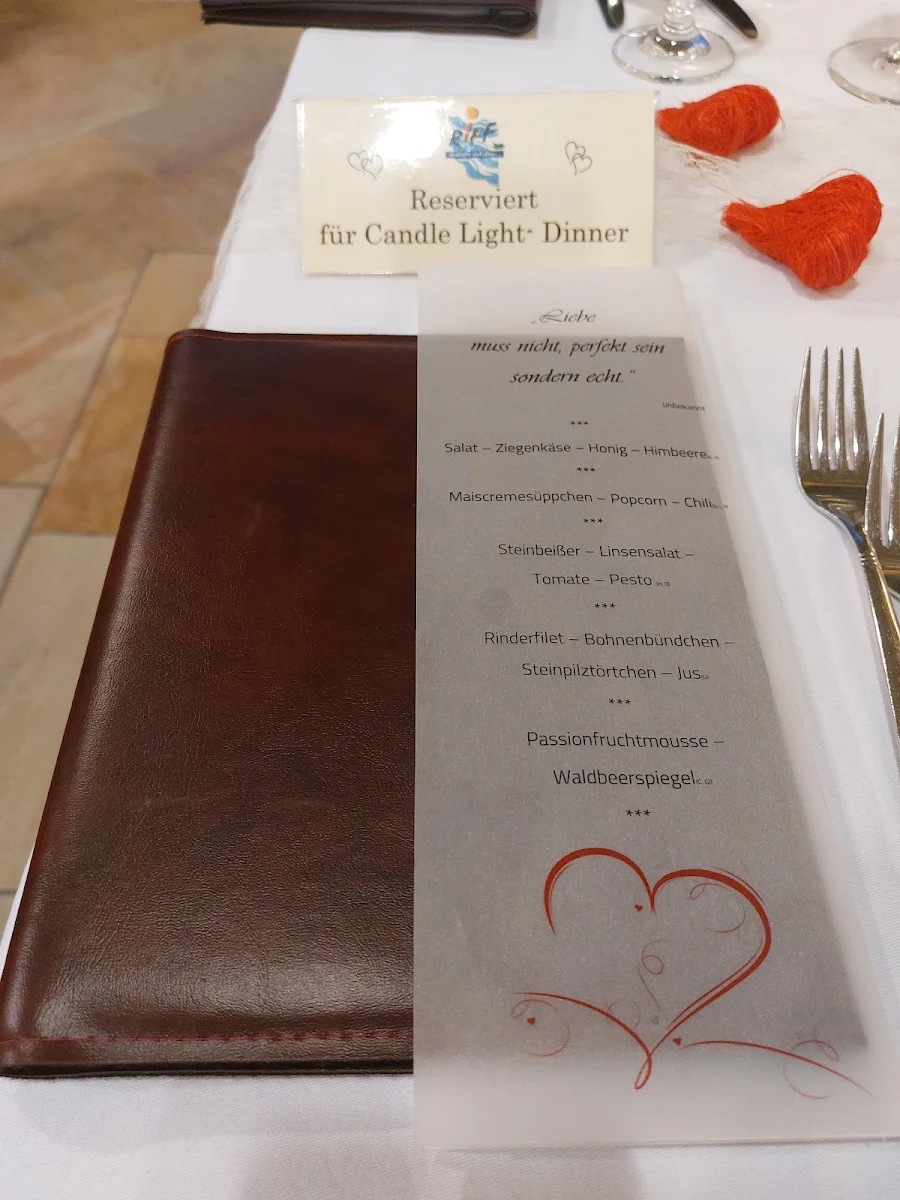 RIFF
Reserviert
für Candle Light- Dinner
„Liebe
muss nicht, perfekt sein
sondern echt."
unbekannt
***
Salat – Ziegenkäse – Honig – Himbeere
***
Maiscremesüppchen – Popcorn – Chili
***
Steinbeißer – Linsensalat –
Tomate – Pesto
***
Rinderfilet – Bohnenbündchen –
Steinpilztörtchen – Jus
***
Passionfruchtmousse –
Waldbeerspiegel
***